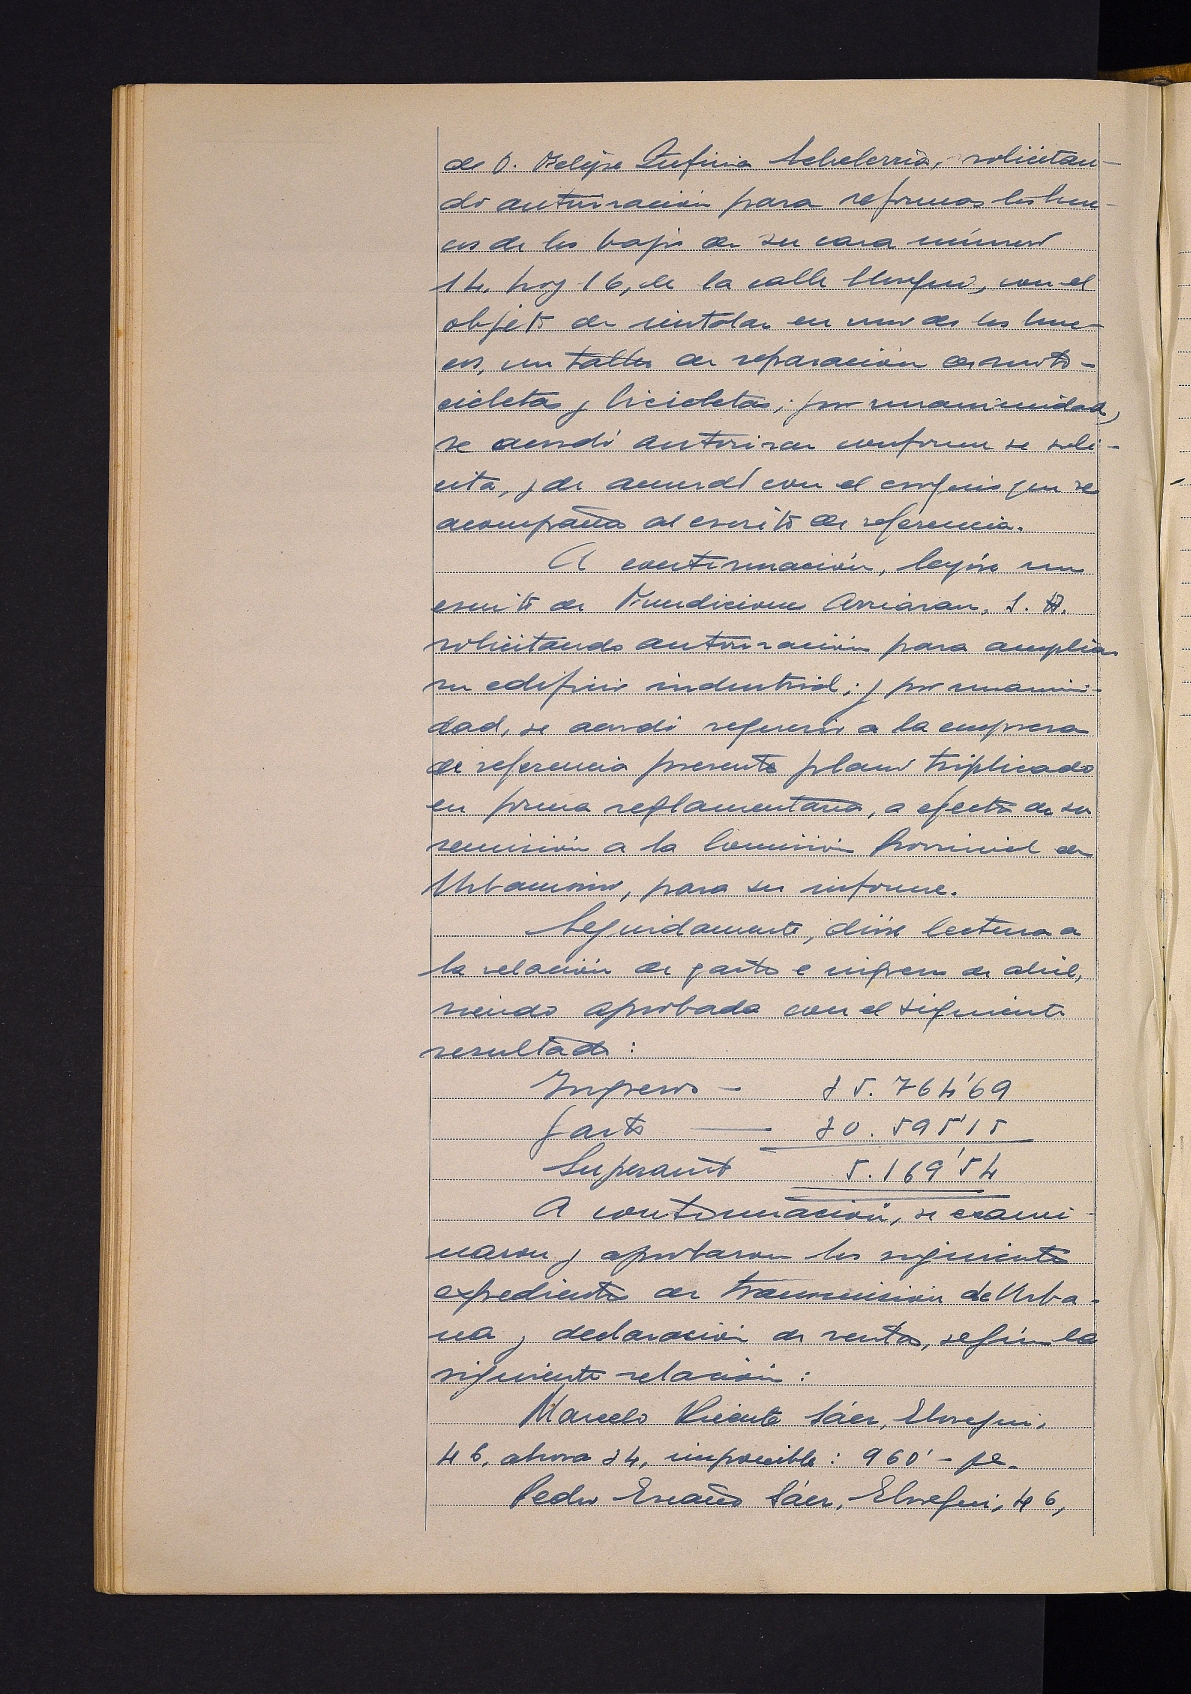 de D. Felipe Echeberría, solicitan-
do autorización para reformar los hue-
cos de los bajos de su casa número
14, hoy 16, de la calle con el
objeto de instalar en uno de los hue-
cos, un taller de reparación de moto-
cicletas y bicicletas; por unanimidad,
se acordó autorizar conforme se soli-
cita, y de acuerdo con el croquis que se
acompaña al escrito de referencia.
A continuación, leyóse un
escrito de Fundiciones Arriaran, S. A.
solicitando autorización para ampliar
su edificio industrial; y por unanimi-
dad, se acordó requerir a la empresa
de referencia presente plano triplicado
en forma reglamentaria, a efectos de su
remisión a la Comisión Provincial de
Urbanismo, para su informe.
Seguidamente, dióse lectura a
la relación de gastos e ingresos de abril,
siendo aprobada con el siguiente
resultado:
Ingresos - 75.764'69
Gastos — 70.595'15
Superávit 5.169'54
A continuación, se exami-
naron y aprobaron los siguientes
expedientes de transmisión de Urba-
na y declaración de rentas, según la
siguiente relación:
Marcelo Vicente Sáez, Elosegui,
46, ahora 34, imponible: 960'- pe.
Pedro Sáez, Elosegui, 46,